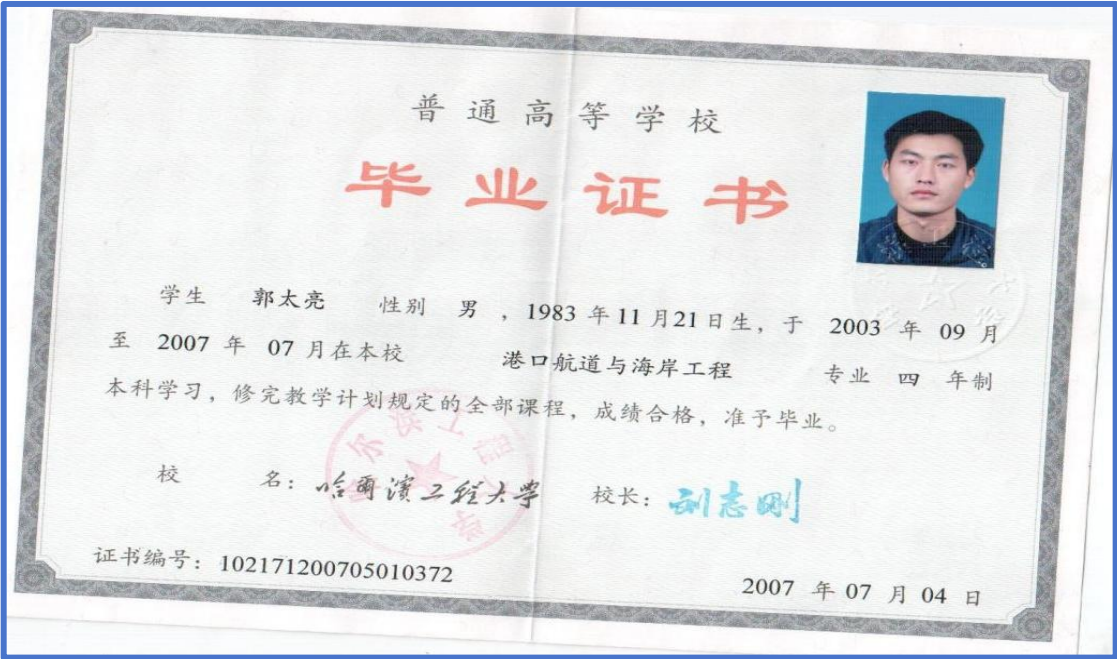 普通高等学校
毕业证书
学生 郭太亮 性别 男 ，1983 年 11 月 21 日生，于 2003 年 09 月
至 2007 年 07 月在本校 港口航道与海岸工程 专业 四 年制
本科学习，修完教学计划规定的全部课程，成绩合格，准予毕业。
校 名：哈爾濱工程大學 校长：刘志刚
哈尔滨工程大学
证书编号：102171200705010372
2007 年 07 月 04 日